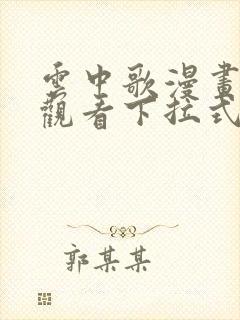 雲中歌漫畫
觀看下拉式
郭某某